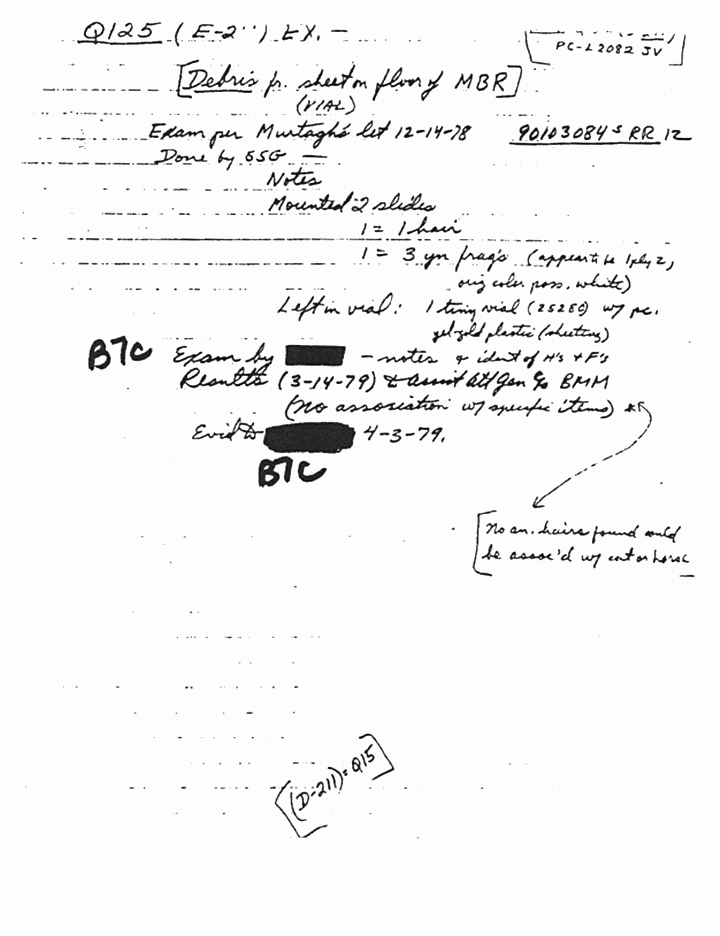 Q125 (E-2'') EX. —
PC-L2082 JV
[Debris fr. sheet on floor of MBR]
(VIAL)
Exam per Murtagh's let 12-14-78 90103084 S RR 12
Done by SSG —
Notes
Mounted 2 slides
1 = 1 hair
1 = 3 yn frags (appear to be 1 ply Z,
orig color poss. white)
Left in vial: 1 tiny vial (25250) w/ pc.
gold plastic (sheeting)
B7C Exam by — notes + ident of H's + F's
Results (3-14-79) to Assist Att Gen BMM
(No association w/ specific items)
Evid to 4-3-79.
B7C
[No an. hairs found could
be assoc'd w/ cat or horse
[(D-211) = Q15]